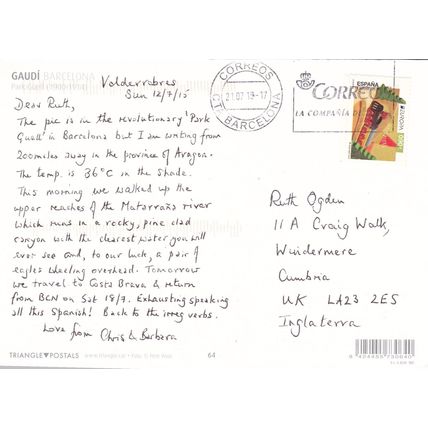 GAUDÍ BARCELONA
Park Güell (1900-1914)
Valderrobres
Sun 12/7/15
Dear Ruth,
The pic is in the revolutionary 'Park
Guell' in Barcelona but I am writing from
200 miles away in the province of Aragon.
The temp. is 36°C in the shade.
This morning we walked up the
upper reaches of the Matarraña river
which runs in a rocky, pine clad
canyon with the clearest water you will
ever see and, to our luck, a pair of
eagles wheeling overhead. Tomorrow
we travel to Costa Brava & return
from BCN on Sat 18/7. Exhausting speaking
all this Spanish! Back to the irreg. verbs.
Love from Chris & Barbara
TRIANGLE POSTALS
64
CORREOS
21.07.15-17
CT BARCELONA
CORREOS
LA COMPAÑÍA DE
ESPAÑA
EUROPA
Ruth Ogden
11 A Craig Walk,
Windermere
Cumbria
UK LA23 2ES
Inglaterra